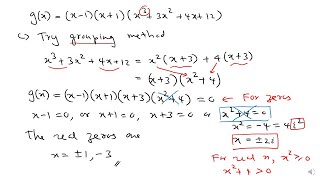 g(x) = (x-1)(x+1)(x³+3x²+4x+12)
↳ Try grouping method
x³+3x²+4x+12 = x²(x+3)+4(x+3)
= (x+3)(x²+4)
g(x) = (x-1)(x+1)(x+3)(x²+4) = 0 ← For zeros
x-1=0, or x+1=0, x+3=0 or x²+4=0
x²=-4=4i²
x=±2i
The real zeros are
x = ±1, -3
For real x, x²≥0
x²+4>0